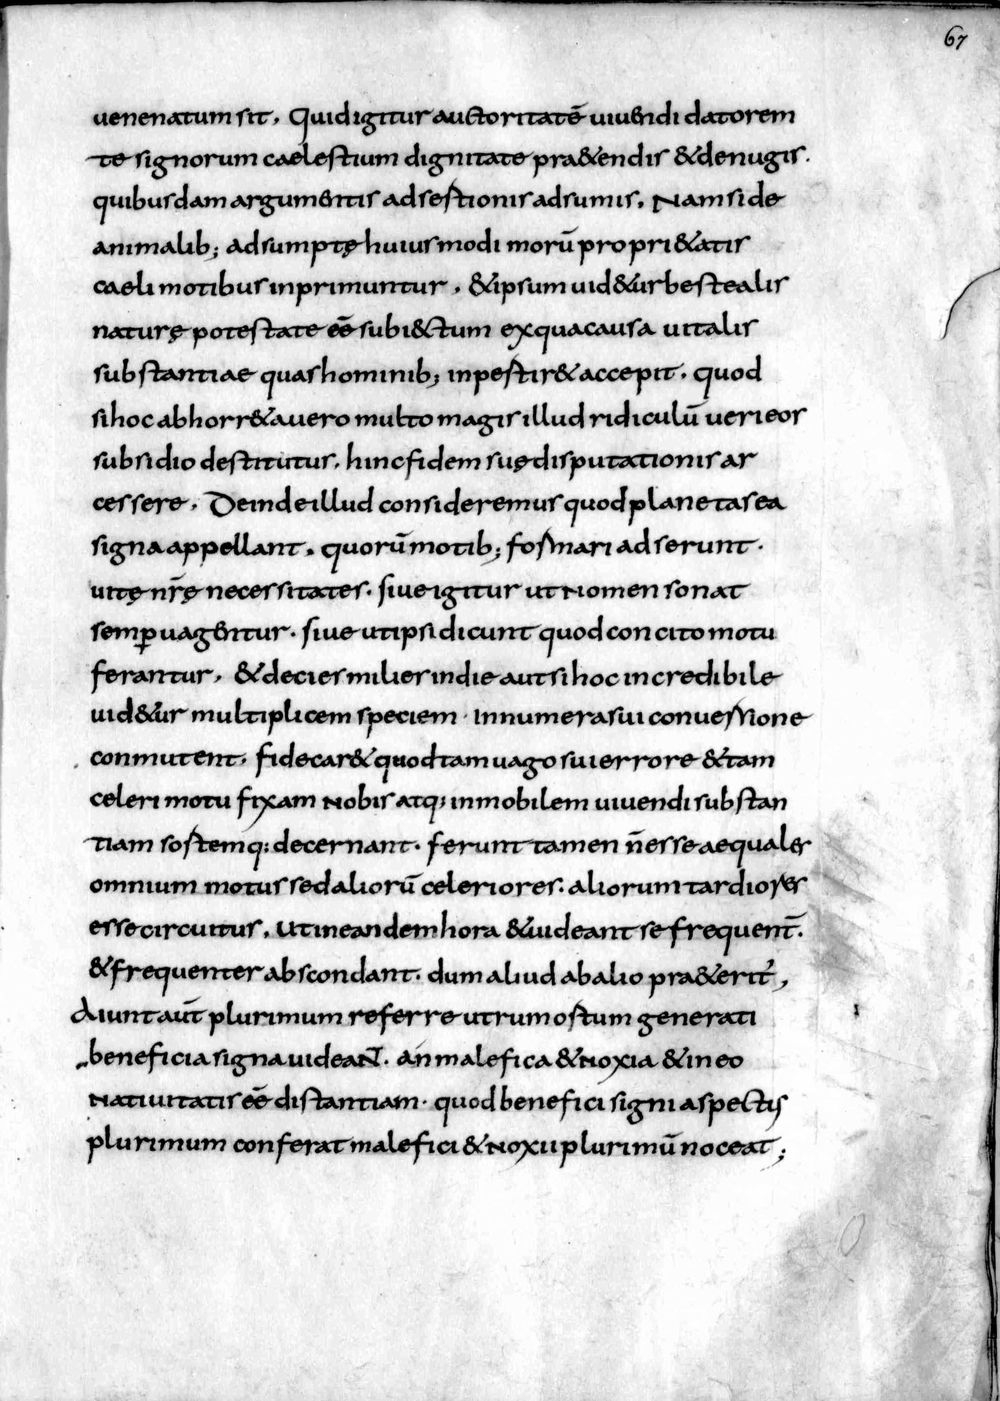 67
uenenatum sit, Quid igitur auctoritatē uiuendi datorem
te signorum caelestium dignitate pra&endis & de nugis.
quibusdam argumentis adsestionis adsumis, Nam si de
animalib; adsumptę huiusmodi morū propri&atis
caeli motibus inprimuntur, & ipsum uid&ur bestealis
naturę potestate eē subi&ctum ex qua causa uitalis
substantiae quas hominib; inpestir& accepit, quod
si hoc abhorr& a uero multo magis illud ridiculū ueri eor
subsidio destitutus, hinc fidem suę disputationis ar
cessere, Deinde illud consideremus quod planetas ea
signa appellant, quorū motib; formari adserunt.
uitę nr̄ę necessitates. siue igitur ut nomen sonat
semꝑ uagentur. siue ut ipsi dicunt quod concito motu
ferantur, & decies milier in die aut si hoc incredibile
uid&ur multiplicem speciem innumera sui conuersione
conmutent, fide car& quod tam uago sui errore & tam
celeri motu fixam nobis atq; inmobilem uiuendi substan
tiam sostemq; decernant. ferunt tamen n̄ esse aequales
omnium motus sed aliorū celeriores. aliorum tardiores
esse circuitus, ut in eandem hora & uideant se frequent̄.
& frequenter abscondant. dum aliud ab alio pra&erit̄,
Aiunt aūt plurimum referre utrum ostum generati
beneficia signa uideant. an malefica & noxia & in eo
natiuitatis eē distantiam. quod benefici signi aspectus
plurimum conferat malefici & noxii plurimū noceat;